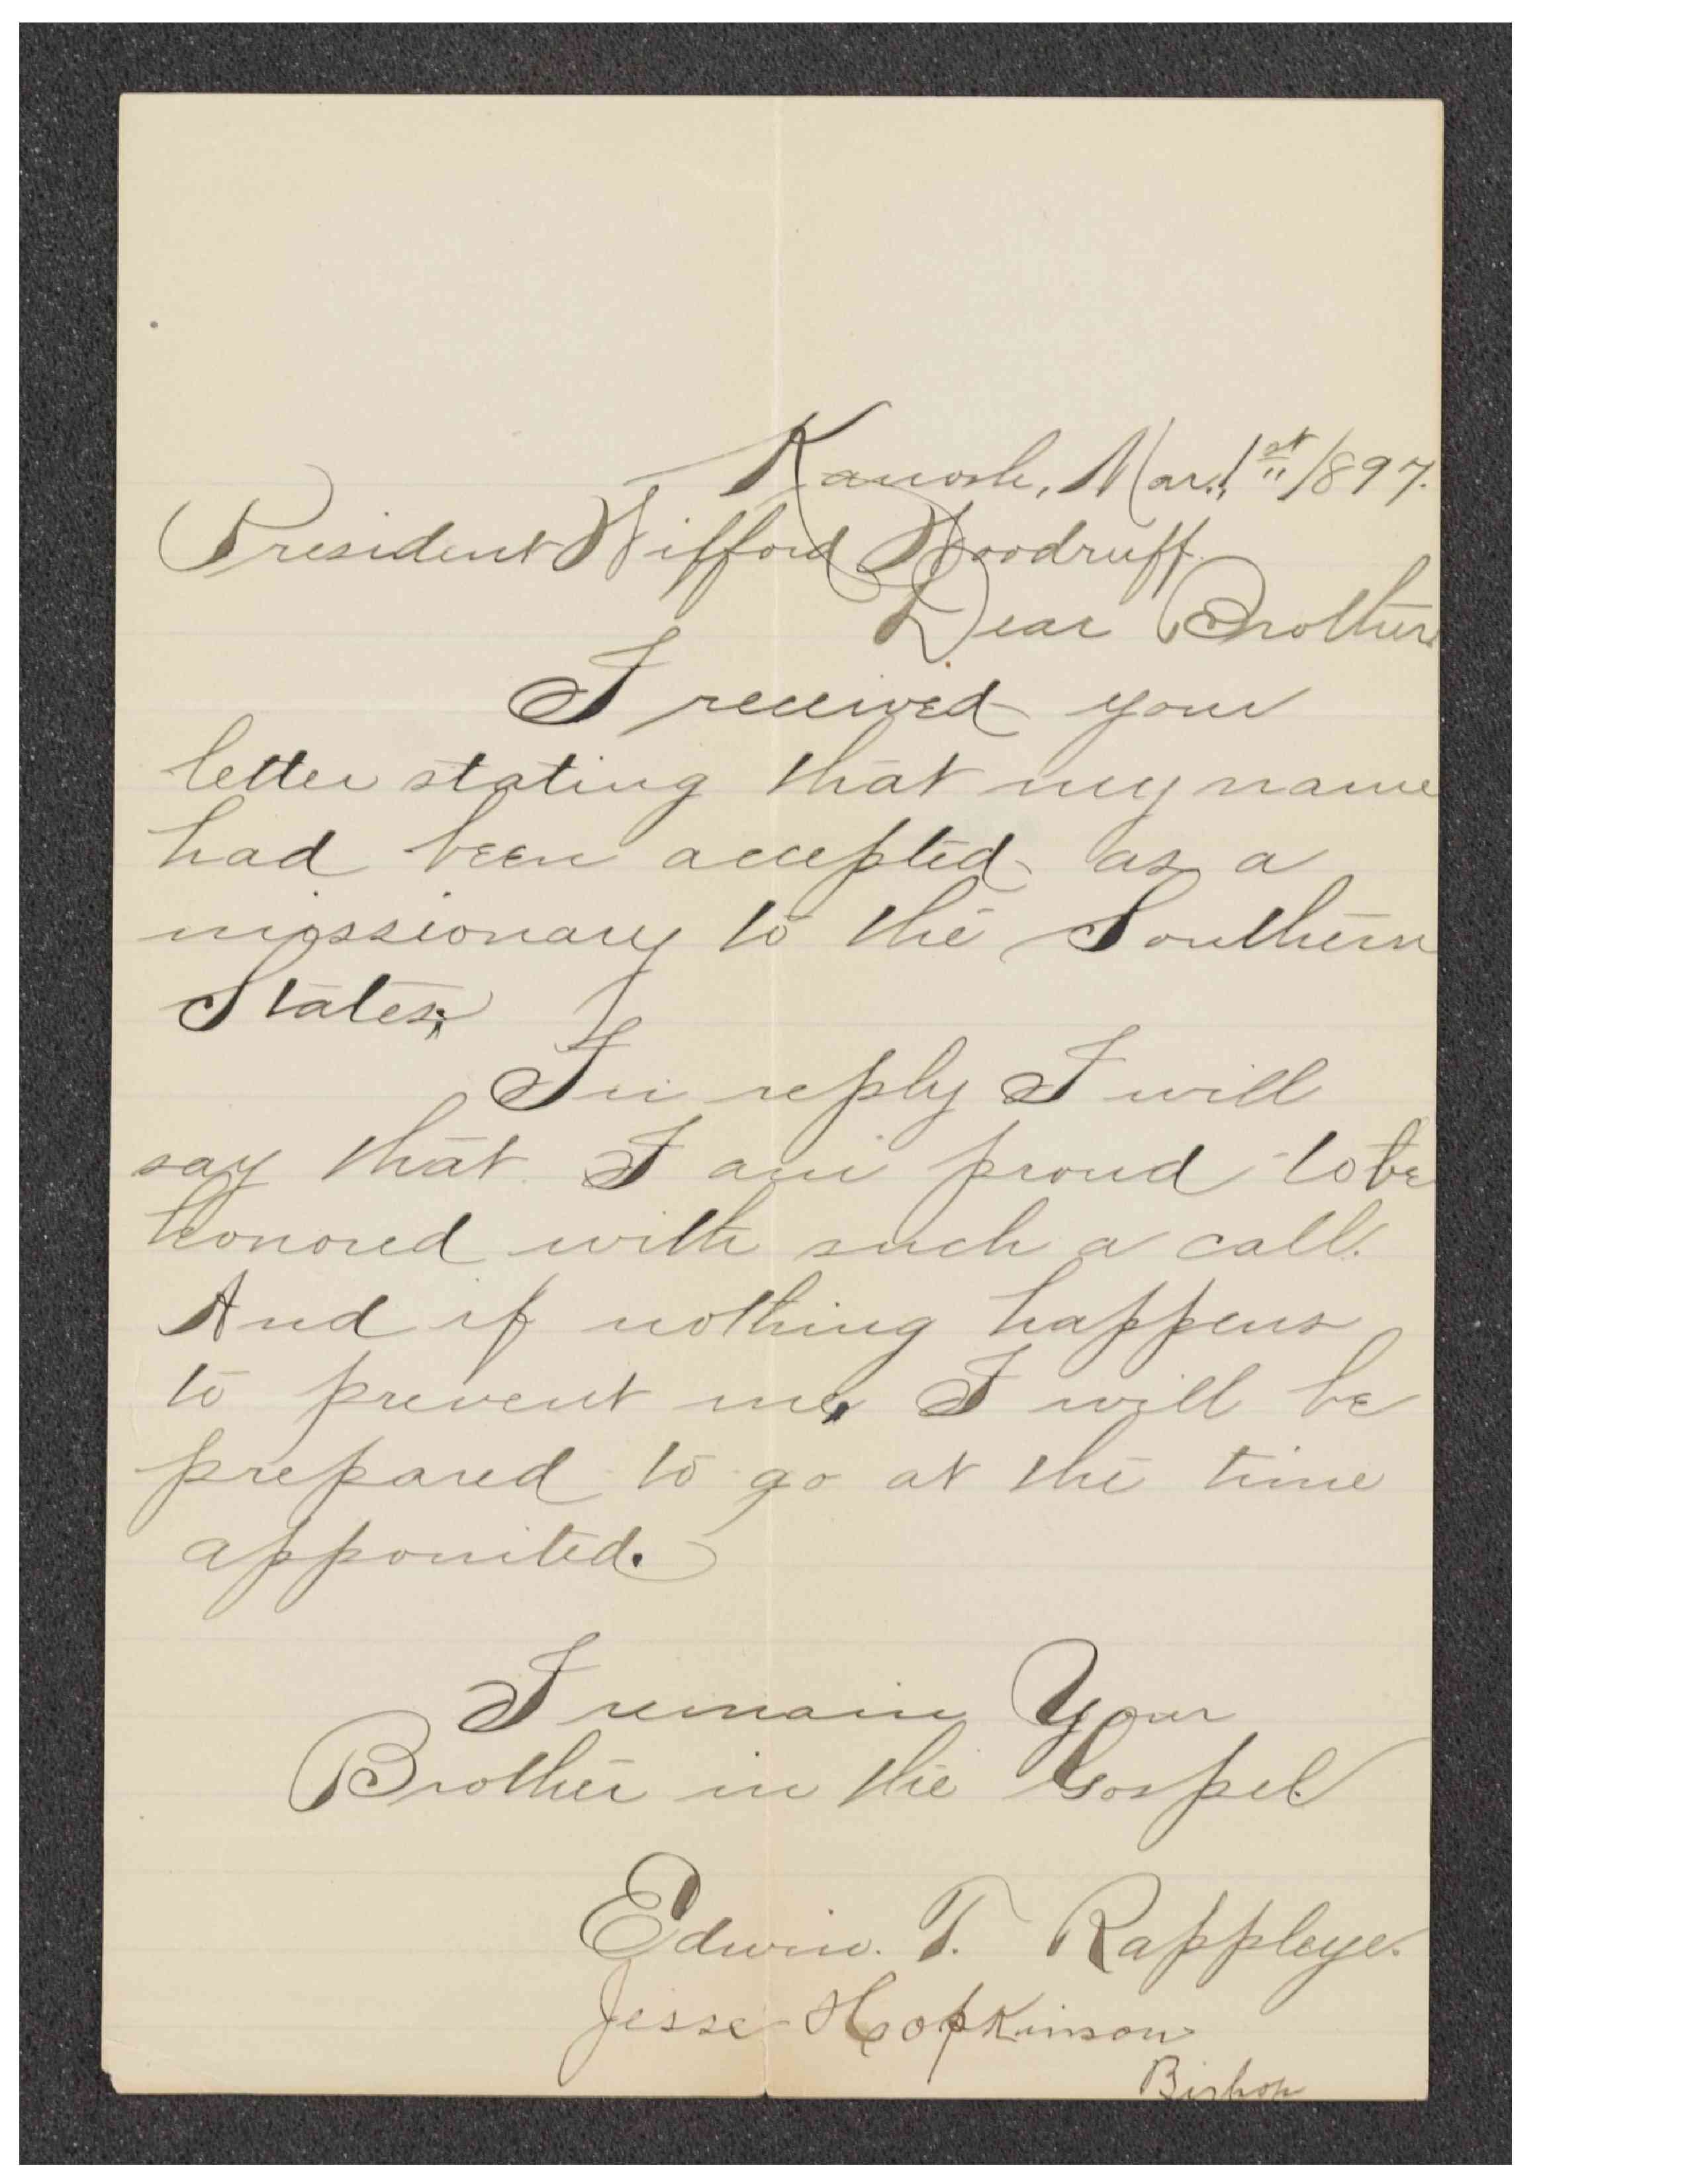 Kanosh, Mar. 1st 1897.
President Wifford Woodruff.
Dear Brother.
I received your
letter stating that my name
had been accepted as a
missionary to the Southern
States;
In reply I will
say that I am proud to be
honored with such a call.
And if nothing happens
to prevent me, I will be
prepared to go at the time
appointed.
I remain Your
Brother in the Gospel.
Edwin. T. Rappleye.
Jesse Hopkinson
Bishop